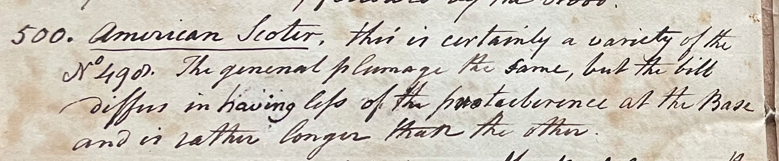 500. American Scoter. this is certainly a variety of the
No 498. The general plumage the same, but the bill
differs in having less of the protuberence at the Base
and is rather longer than the other.